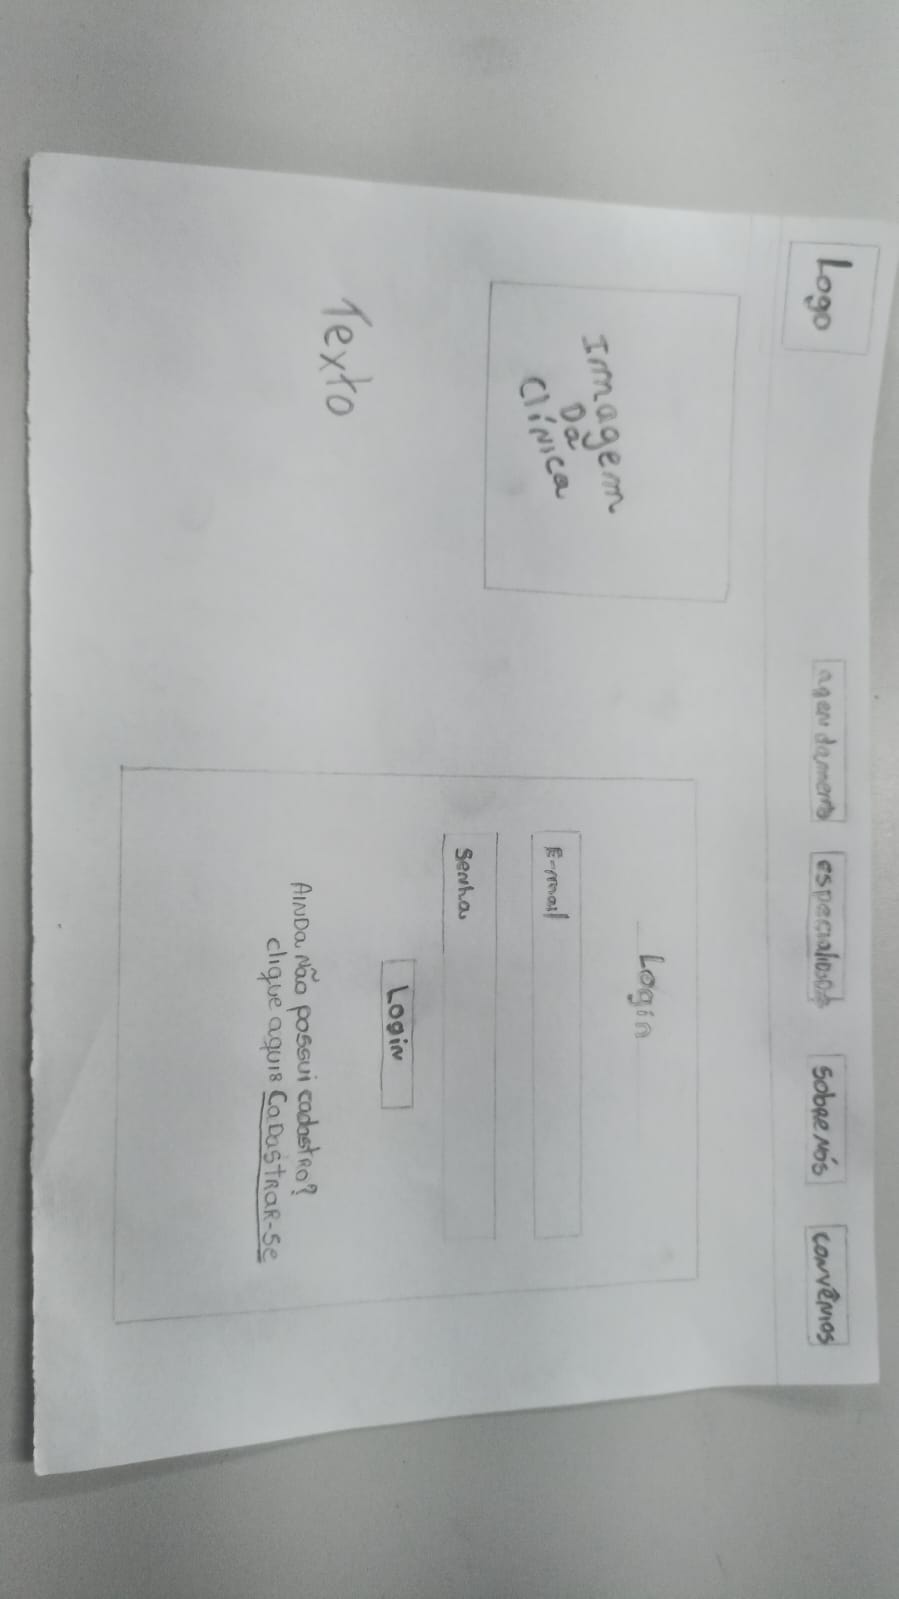 Logo
agendamento
especialidade
Sobre nós
convênios
Imagem
Da
clínica
Texto
Login
E-mail
Senha
Login
AINDA Não possui cadastro?
clique aqui: CaDastrar-se